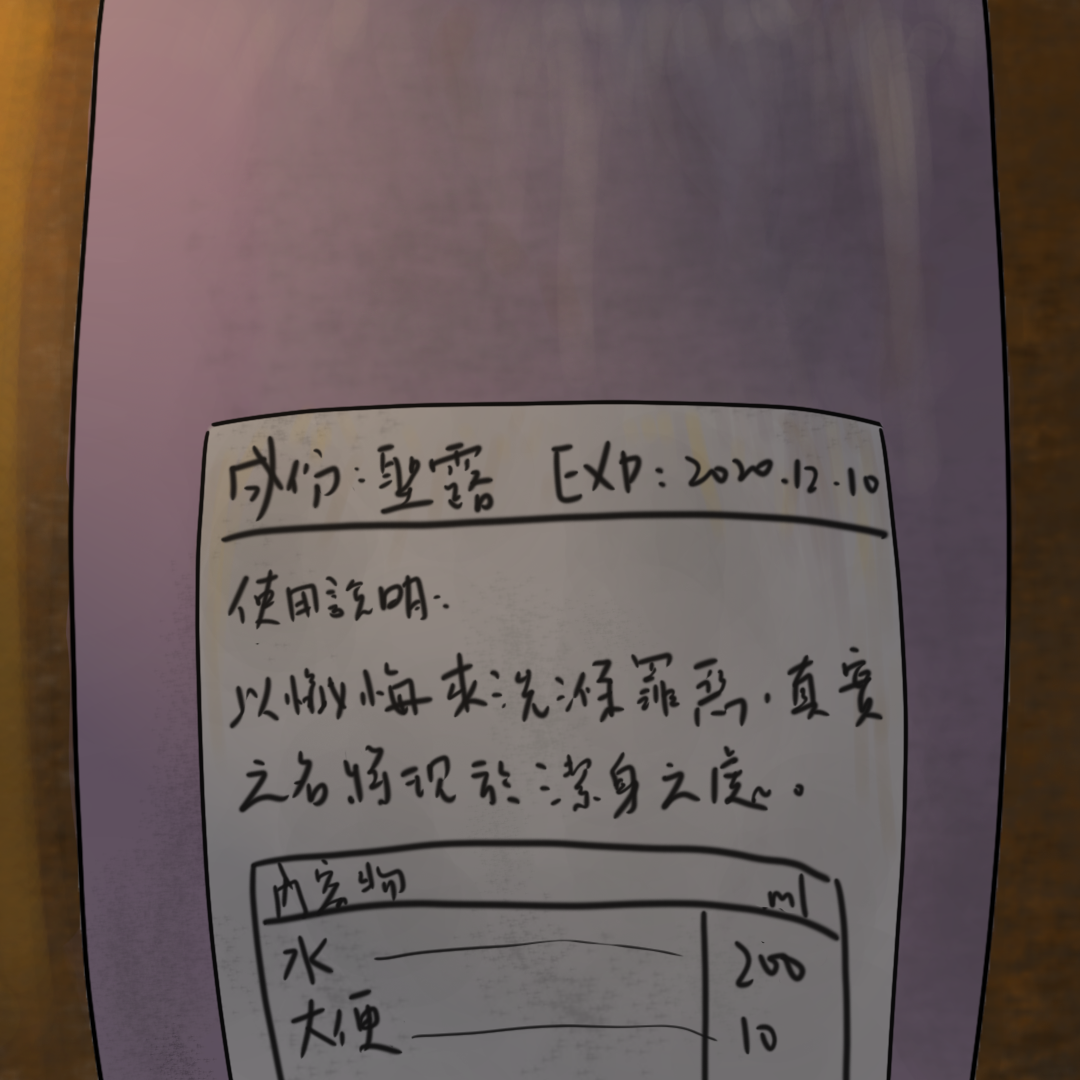 成份:聖露 EXP:2020.12.10
使用說明:
以懺悔來洗滌罪惡.真實
之名將現於潔身之後。
內容物 ml
水 200
大便 10